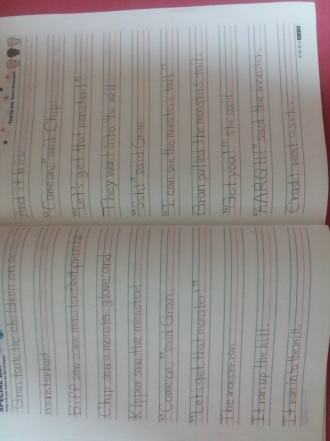 Gran took the children on a
monster hunt
Biff saw some monster footprints
Chip saw a monsters glove and
Kipper saw the monster!
"Come on," said Gran.
"Let's get that monster!"
The monster ran.
It ran up the hill.
It ran into the mill.
And it hid.
"Come on," said Chip.
"Let's get that monster!"
They went into the mill
"Ssh!" said Gran.
"I can see the monsters tail."
Gran pulled the monsters tail.
"Got you!" she said
said the monster.
Crash! went a